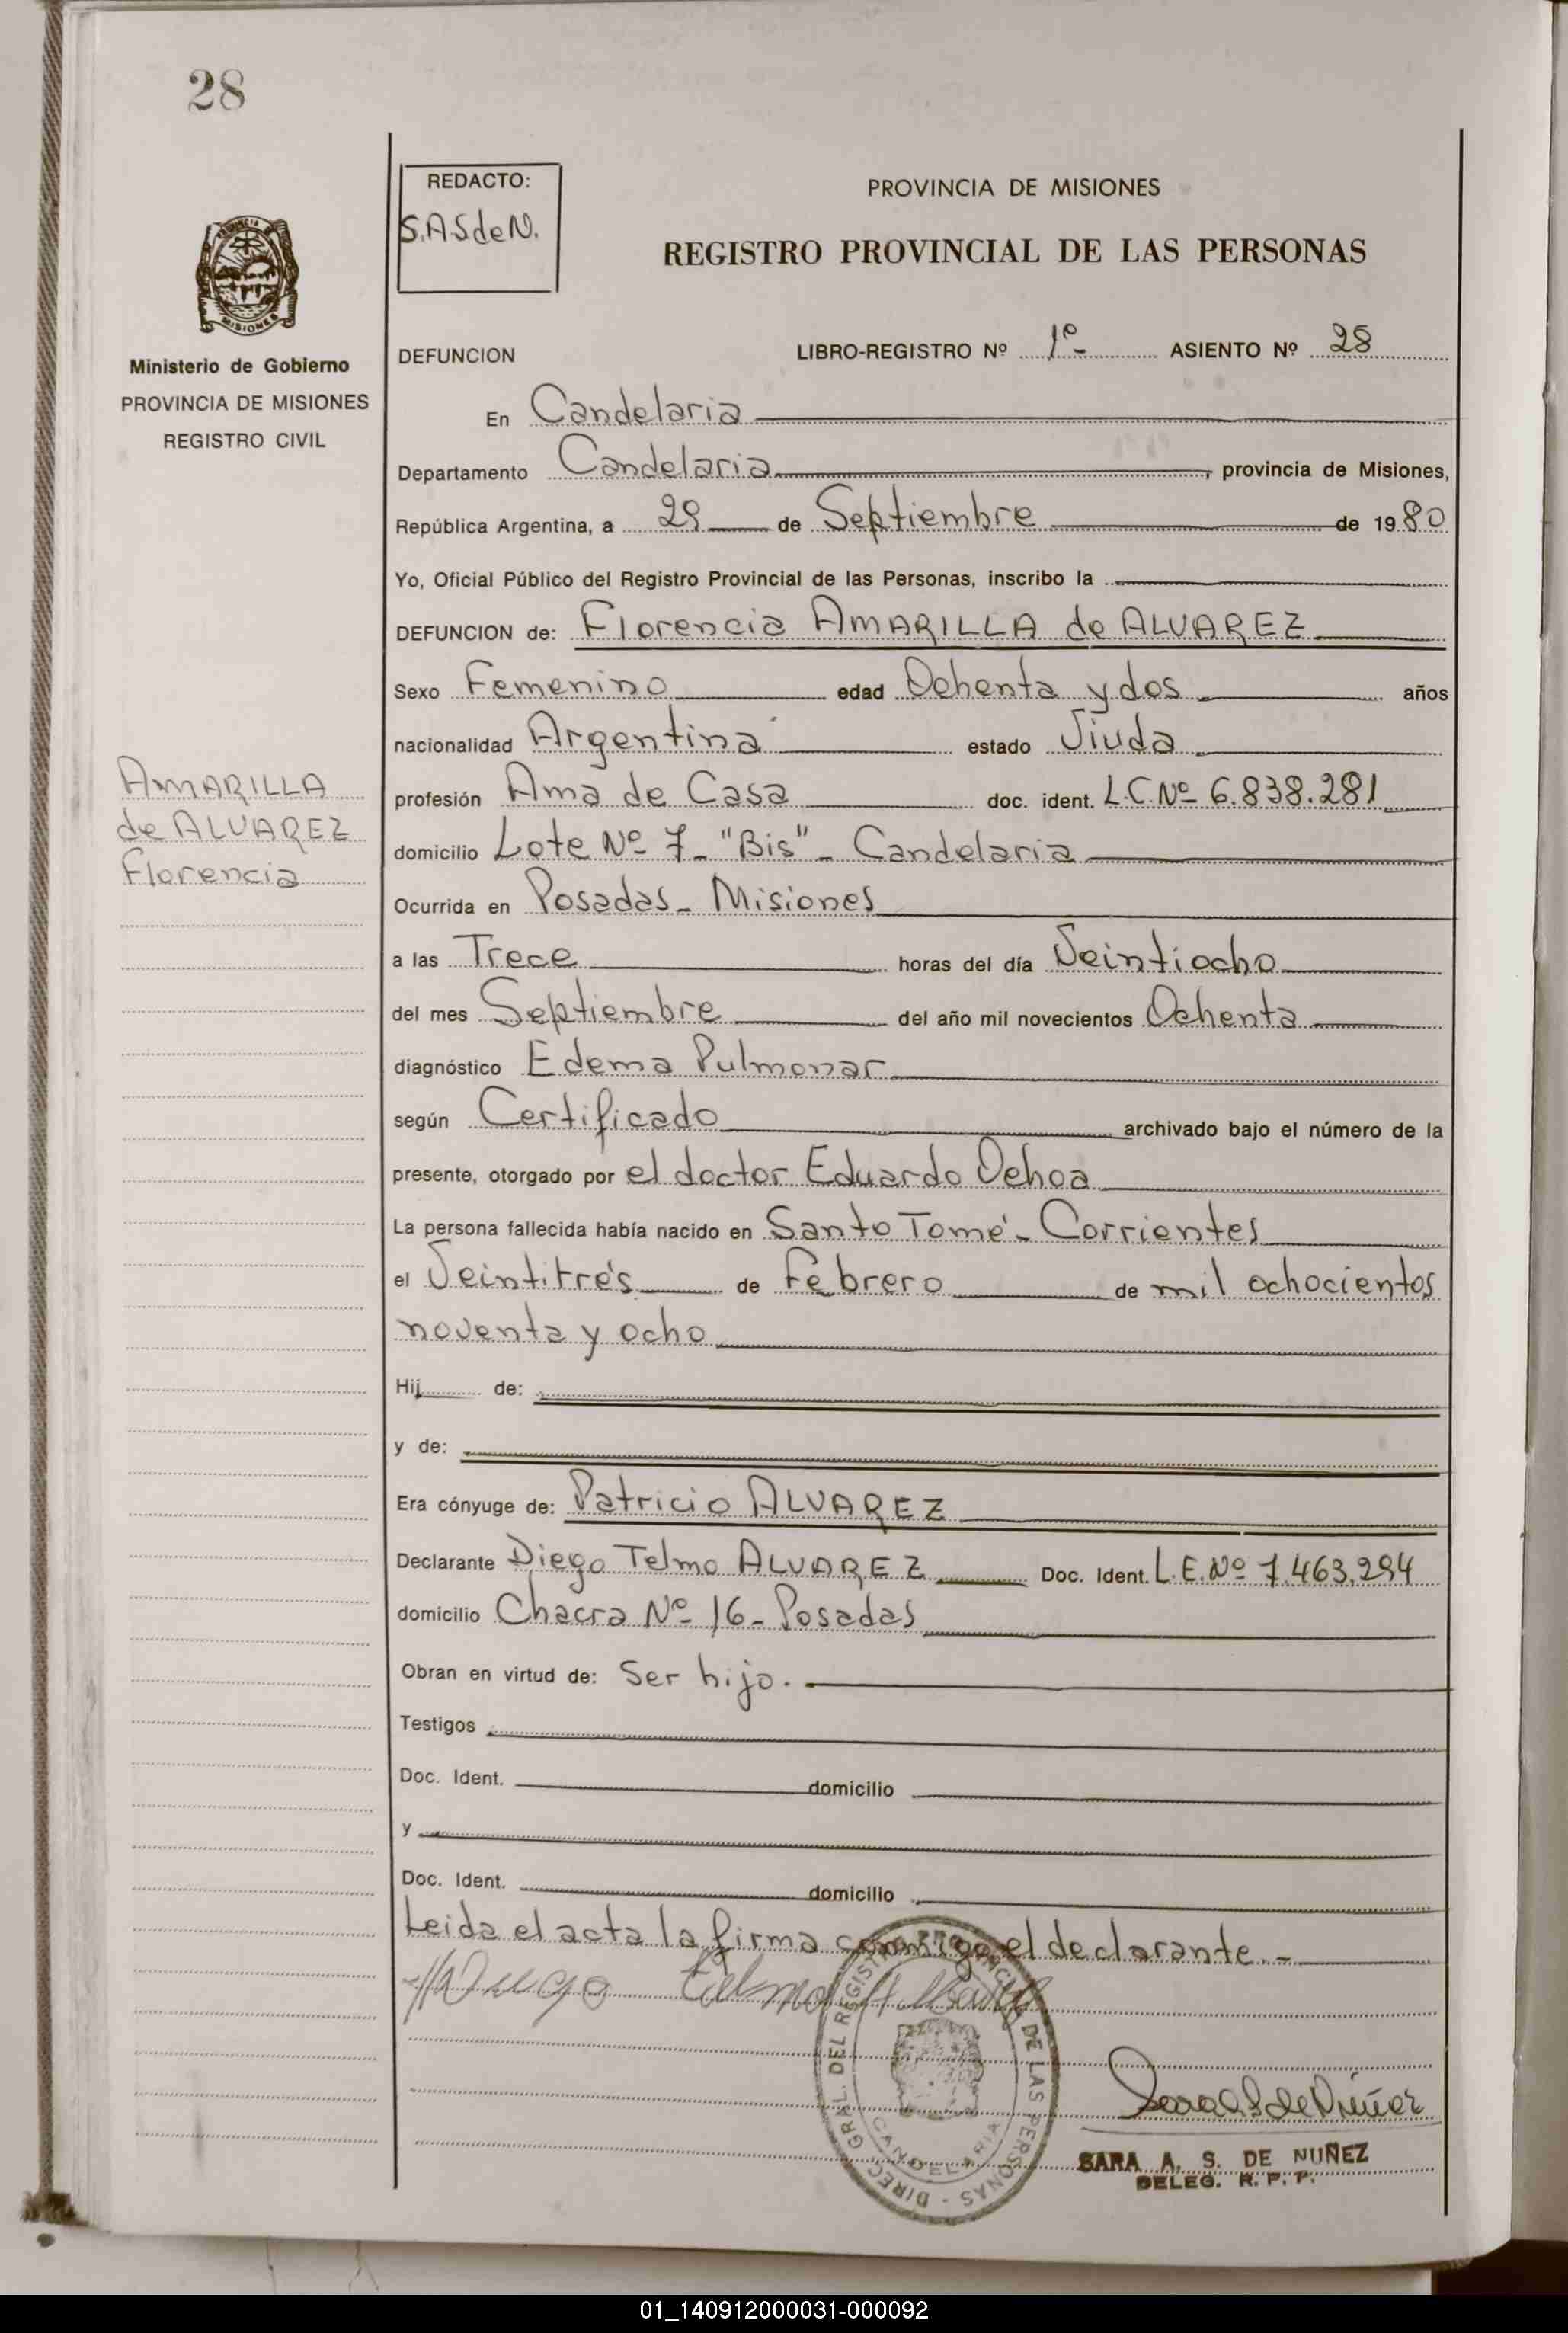 28
REDACTO:
S.A.S de N.
PROVINCIA DE MISIONES
REGISTRO PROVINCIAL DE LAS PERSONAS
PROVINCIA DE
MISIONES
Ministerio de Gobierno
PROVINCIA DE MISIONES
REGISTRO CIVIL
DEFUNCION LIBRO-REGISTRO Nº 1º- ASIENTO Nº 28
En Candelaria
Departamento Candelaria, provincia de Misiones,
República Argentina, a 29 de Septiembre de 1980
Yo, Oficial Público del Registro Provincial de las Personas, inscribo la
DEFUNCION de: Florencia AMARILLA de ALVAREZ
Sexo Femenino edad Ochenta y dos años
nacionalidad Argentina estado Viuda
AMARILLA
de ALVAREZ
Florencia
profesión Ama de Casa doc. ident. L.C.Nº 6.838.281
domicilio Lote Nº 7- "Bis" - Candelaria
Ocurrida en Posadas - Misiones
a las Trece horas del día Veintiocho
del mes Septiembre del año mil novecientos Ochenta
diagnóstico Edema Pulmonar
según Certificado archivado bajo el número de la
presente, otorgado por el doctor Eduardo Ochoa
La persona fallecida había nacido en Santo Tomé - Corrientes
el Veintitrés de Febrero de mil ochocientos
noventa y ocho
Hij de:
y de:
Era cónyuge de: Patricio ALVAREZ
Declarante Diego Telmo ALVAREZ Doc. Ident. L.E.Nº 7.463.294
domicilio Chacra Nº 16 - Posadas
Obran en virtud de: Ser hijo.
Testigos
Doc. Ident. domicilio
y
Doc. Ident. domicilio
Leida el acta la firma conmigo el declarante.-
Diego Telmo Albarez
DIREC. GRAL. DEL REGISTRO PROVINCIAL DE LAS PERSONAS -
CANDELARIA
Sara A S de Núñez
SARA A. S. DE NUÑEZ
DELEG. R. P. P.
01_140912000031-000092